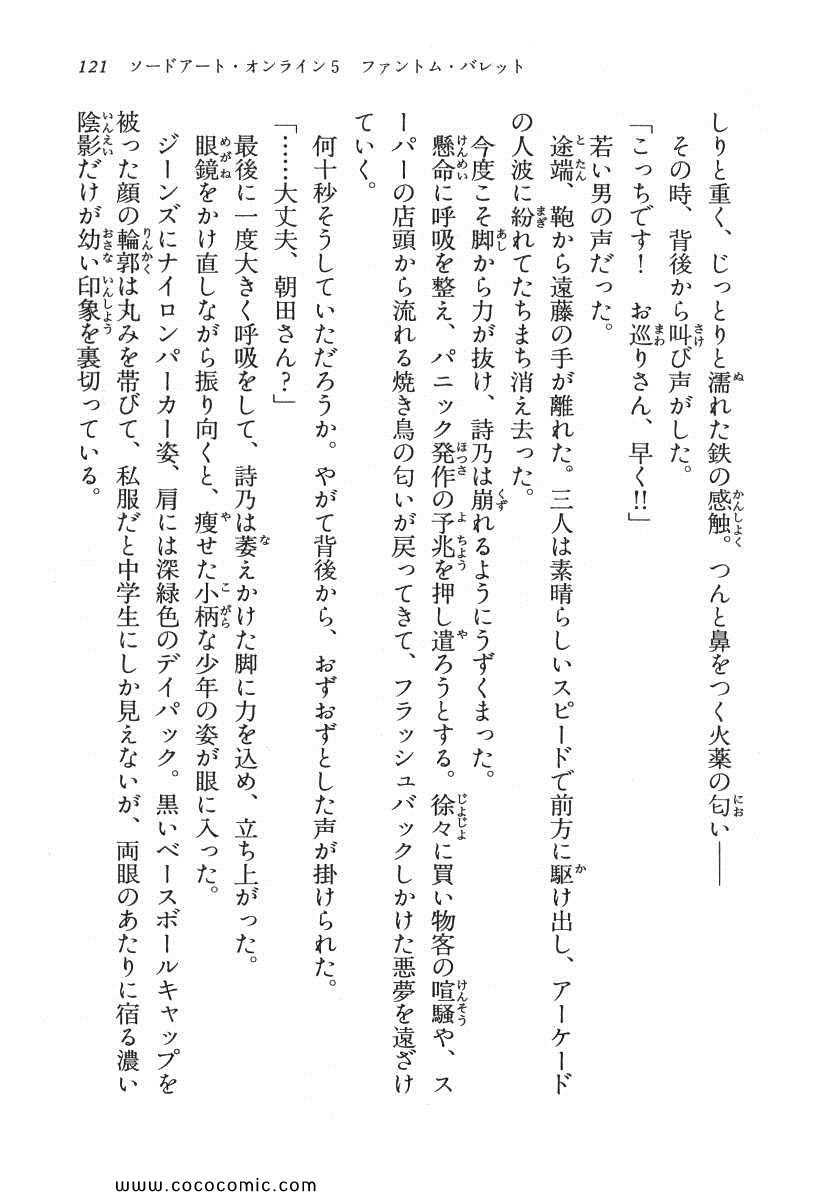 121　ソードアート・オンライン5　ファントム・バレット
しりと重く、じっとりと濡れた鉄の感触。つんと鼻をつく火薬の匂い――
　その時、背後から叫び声がした。
「こっちです！　お巡りさん、早く!!」
若い男の声だった。
　途端、鞄から遠藤の手が離れた。三人は素晴らしいスピードで前方に駆け出し、アーケード
の人波に紛れてたちまち消え去った。
　今度こそ脚から力が抜け、詩乃は崩れるようにうずくまった。
　懸命に呼吸を整え、パニック発作の予兆を押し遣ろうとする。徐々に買い物客の喧騒や、ス
ーパーの店頭から流れる焼き鳥の匂いが戻ってきて、フラッシュバックしかけた悪夢を遠ざけ
ていく。
　何十秒そうしていただろうか。やがて背後から、おずおずとした声が掛けられた。
「……大丈夫、朝田さん？」
　最後に一度大きく呼吸をして、詩乃は萎えかけた脚に力を込め、立ち上がった。
　眼鏡をかけ直しながら振り向くと、痩せた小柄な少年の姿が眼に入った。
　ジーンズにナイロンパーカー姿、肩には深緑色のデイパック。黒いベースボールキャップを
被った顔の輪郭は丸みを帯びて、私服だと中学生にしか見えないが、両眼のあたりに宿る濃い
陰影だけが幼い印象を裏切っている。
www.cococomic.com/